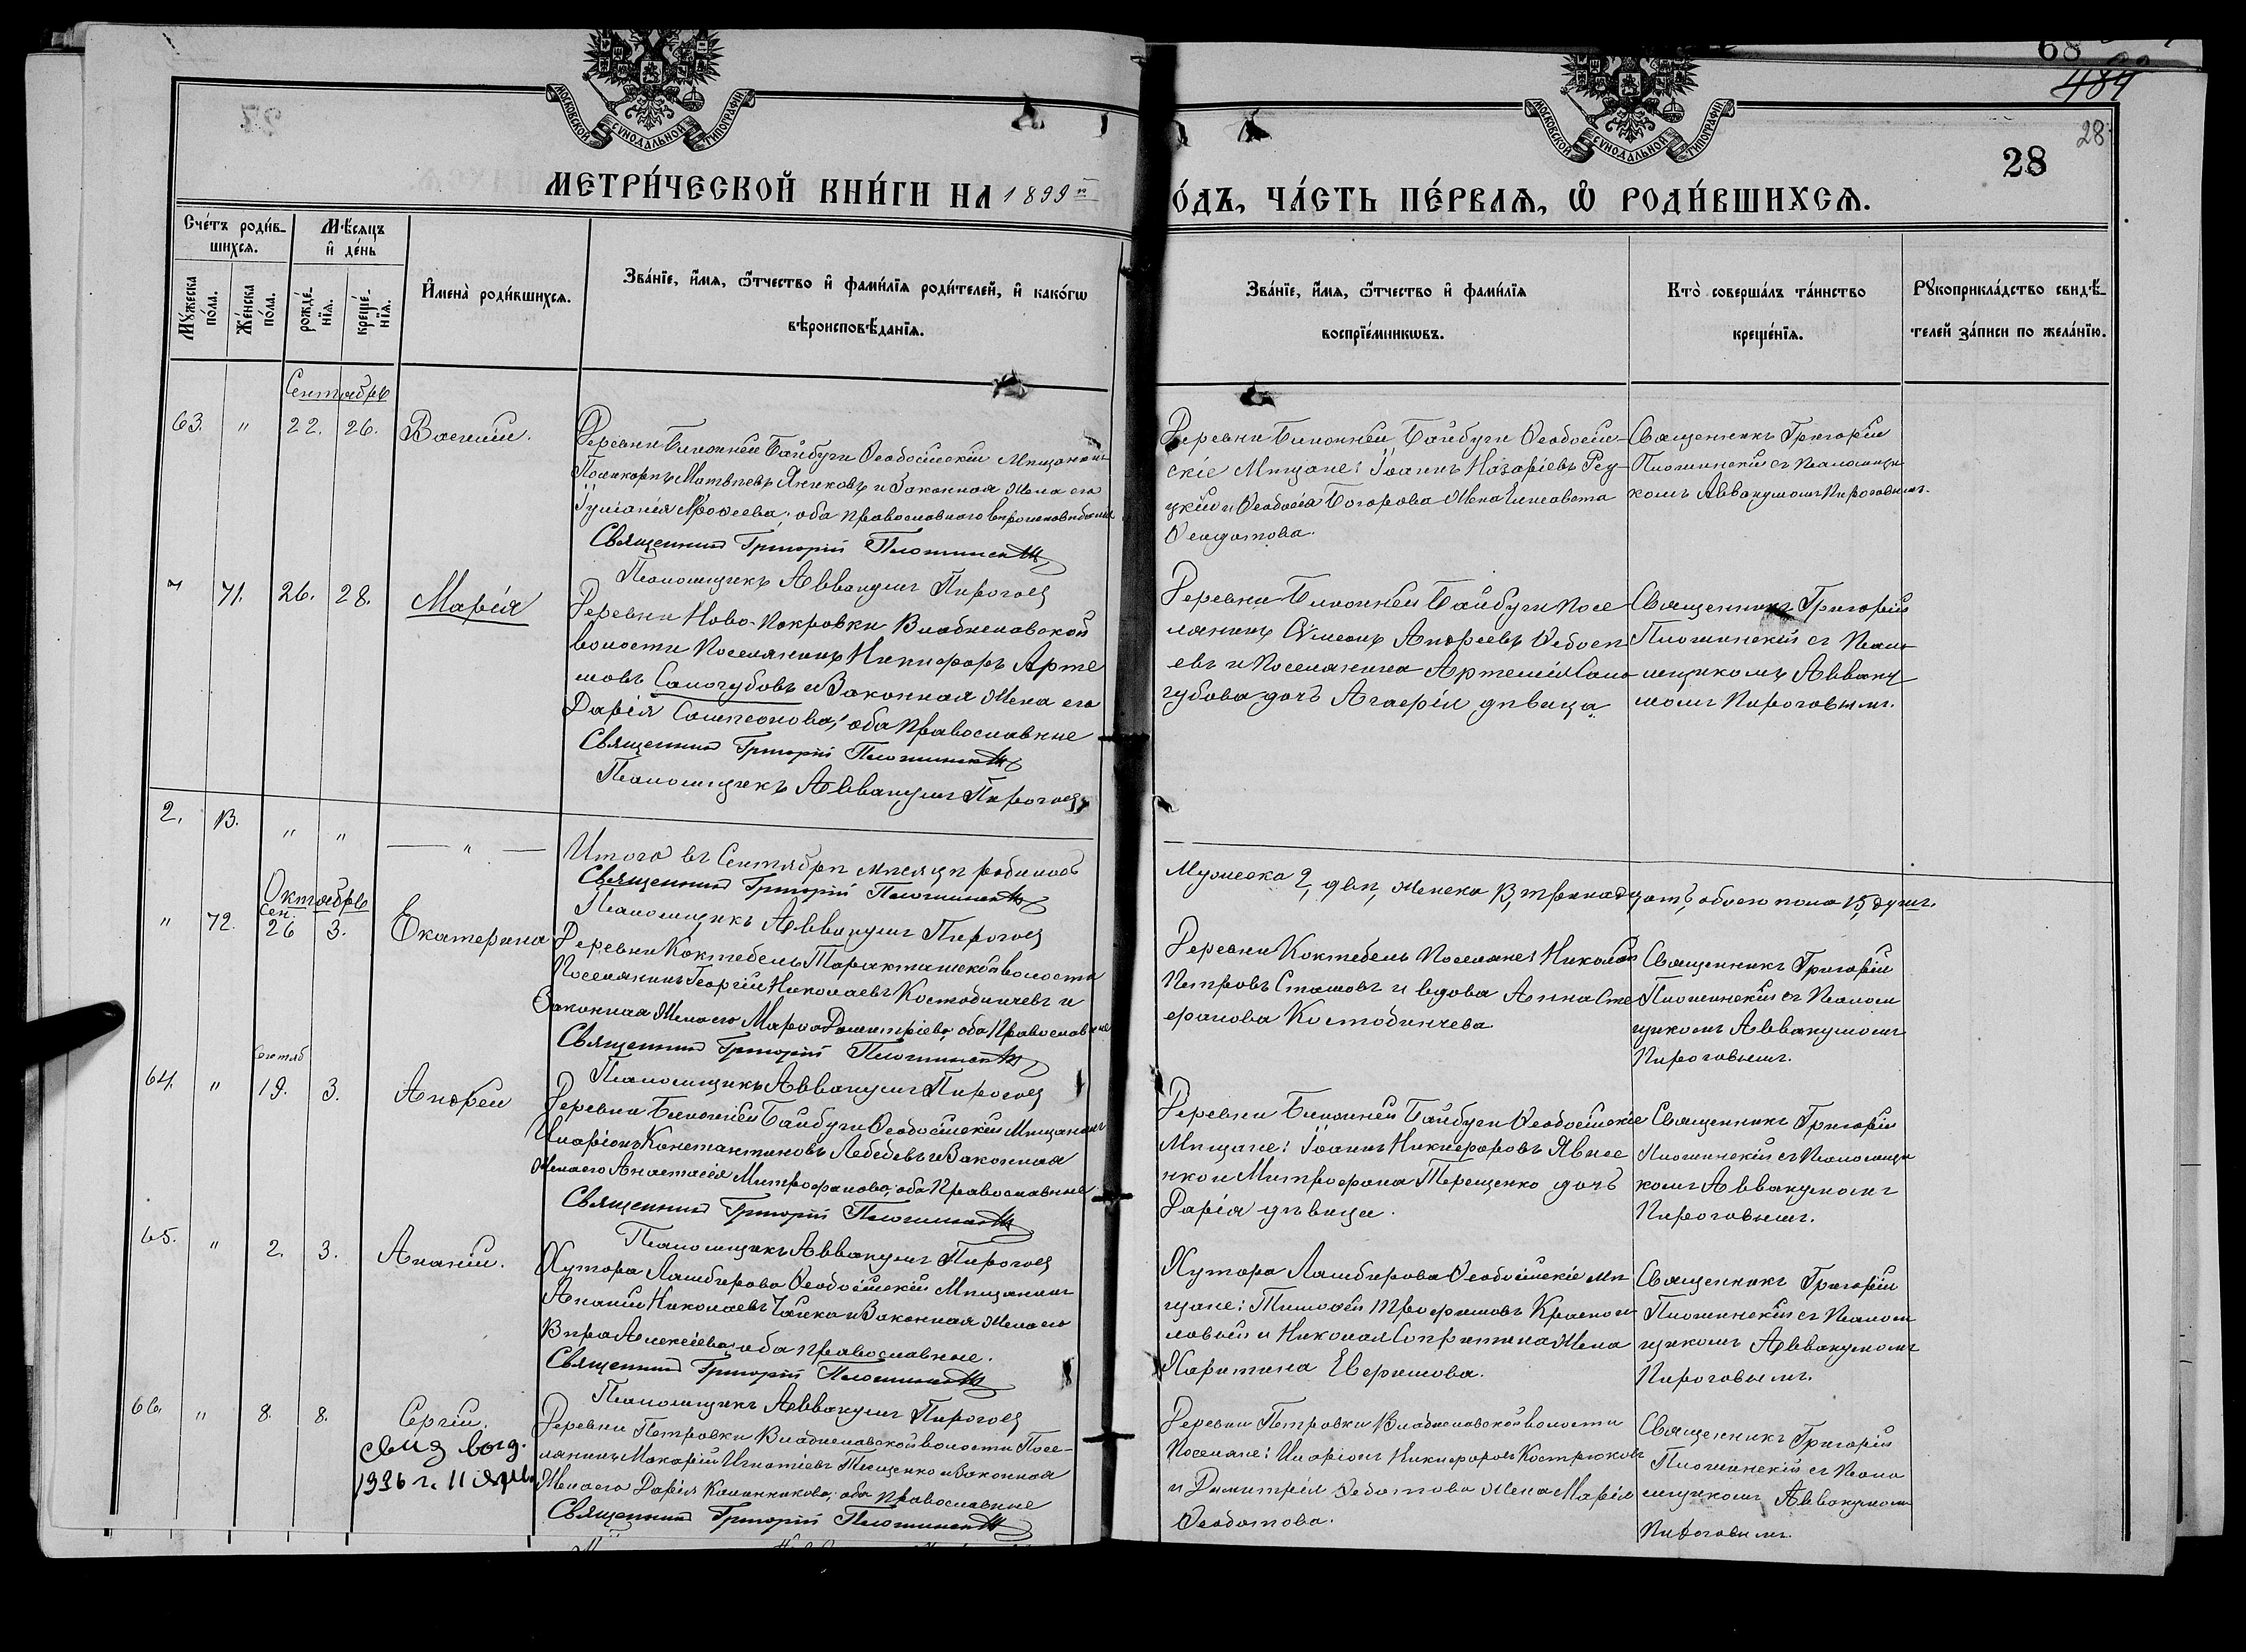 68
484
28
28
МОСКОВСКОЙ СѴНОДАЛЬНОЙ ТИПОГРАФІИ
МОСКОВСКОЙ СѴНОДАЛЬНОЙ ТИПОГРАФІИ
МЕТРИ́ЧЕСКОЙ КНИ́ГИ НА 1899й
О́ДЪ, ЧА́СТЬ ПЕ́РВАѦ, Ѽ РОДИ́ВШИХСѦ.
Сче́тъ роди́в-
шихсѧ.
Мѣ́сѧцъ
и҆ де́нь
Мꙋ́жеска
по́ла.
Же́нска
по́ла.
рожде́-
нїѧ.
креще́-
нїѧ.
И҆мена̀ роди́вшихсѧ.
Зва́нїе, и҆́мѧ, ѻ҆́тчество и҆ фами́лїѧ роди́телей, и҆ како́гѡ
вѣроисповѣ́данїѧ.
Зва́нїе, и҆́мѧ, ѻ҆́тчество и҆ фами́лїѧ
воспрїе́мникѡвъ.
Кто̀ соверша́лъ та́инство
креще́нїѧ.
Рꙋкоприкла́дство свидѣ́-
телей за́писи по жела́нїю.
Сентябрь
63. " 22. 26. Василій.
Деревни Ближней Байбуги Ѳеодосійскій Мѣщанинъ
Поликарпъ Матвѣевъ Яниковъ и Законная жена его
Іуліанія Ерофеева; оба православнаго вѣроисповѣданія
Священникъ Григорій Плотинскій
Псаломщикъ Аввакумъ Пироговъ
Деревни Ближней Байбуги Ѳеодосій-
скіе Мѣщане: Іоаннъ Назаріевъ Рец-
кій и Ѳеодосія жена Елисавета
Ѳеодотова.
Священникъ Григорій
Плотинскій съ Псаломщи-
комъ Аввакумомъ Пироговымъ.
" 71. 26. 28. Марія
Деревни Ново-Покровки Владиславской
волости Поселянинъ Никифоръ Арте-
мовъ Самогубовъ и Законная жена его
Дарія Сампсонова; оба православные
Священникъ Григорій Плотинскій
Псаломщикъ Аввакумъ Пироговъ
Деревни Ближней Байбуги Посе-
лянинъ Сѵмеонъ Андреевъ
евъ и Поселянина Артемія Само-
губова дочь Агафія дѣвица.
Священникъ Григорій
Плотинскій съ Псало-
мщикомъ Авваку-
момъ Пироговымъ.
2. 13. " " "
Итого въ Сентябрѣ мѣсяцѣ родилось
Мужеска 2, два, женска 13, тринадцать, обоего пола 15, душъ.
Священникъ Григорій Плотинскій
Псаломщикъ Аввакумъ Пироговъ
Октябрь
Сен.
" 72. 26 3. Екатерина
Деревни Коктебель Таракташской волости
Поселянинъ Георгій Николаевъ Костобинчевъ и
Законная Жена его Марѳа Димитріева, оба Православные
Священникъ Григорій Плотинскій
Псаломщикъ Аввакумъ Пироговъ
Деревни Коктебель Поселяне: Николай
Петровъ Стамовъ и вдова Анна Сте-
фанова Костобинчева
Священникъ Григорій
Плотинскій съ Псалом-
щикомъ Аввакумомъ
Пироговымъ.
Сентяб
64. " 19. 3. Андрей
Деревни Ближней Байбуги Ѳеодосійскій Мѣщанинъ
Иларіонъ Константиновъ Лебедевъ и Законная
Жена его Анастасія Митрофанова, оба Православные
Священникъ Григорій Плотинскій
Псаломщикъ Аввакумъ Пироговъ
Деревни Ближней Байбуги Ѳеодосійскіе
Мѣщане: Іоаннъ Никифоровъ Явпсе-
нко и Митрофана Терещенко дочь
Дарія дѣвица.
Священникъ Григорій
Плотинскій съ Псаломщи-
комъ Аввакумомъ
Пироговымъ.
65. " 2. 3. Ананій.
Хутора Ламбирова Ѳеодосійскій Мѣщанинъ
Ананій Николаевъ Чайка и Законная Жена его
Вѣра Алексіева, оба православные.
Священникъ Григорій Плотинскій
Псаломщикъ Аввакумъ Пироговъ
Хутора Ламбирова Ѳеодосійскіе Мѣ-
щане: Тимоѳей Трофимовъ Красного-
ловый и Николая Сопритина Жена
Харитина Ефимова.
Священникъ Григорій
Плотинскій съ Псалом-
щикомъ Аввакумомъ
Пироговымъ.
66. " 8. 8. Сергій.
свид выд.
1936 г. 11
Деревни Петровки Владиславской волости Посе-
лянинъ Макарій Игнатіевъ Тищенко и Законная
Жена его Дарія Калинникова, оба православные
Священникъ Григорій Плотинскій
Деревни Петровки Владиславской волости
Поселяне: Иларіонъ Никифоровъ Кострюковъ
и Димитрія Ѳедотова жена Марія
Ѳеодотова.
Священникъ Григорій
Плотинскій съ Псало-
мщикомъ Аввакумомъ
Пироговымъ.